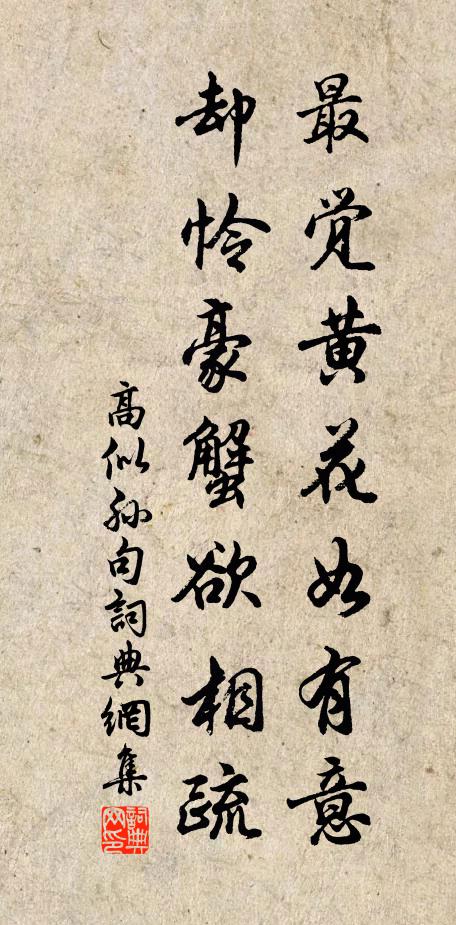 最覺黄花如有意
却怜豪蟹欲相疏
高似孫句詞典網集
詞典網印